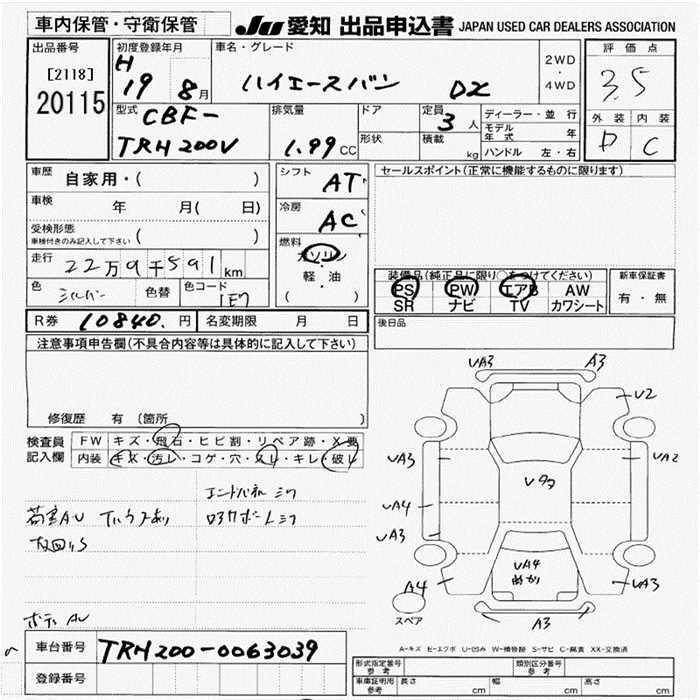 車内保管・守衛保管
JU 愛知 出品申込書 JAPAN USED CAR DEALERS ASSOCIATION
出品番号
[2118]
20115
初度登録年月
H
19 8月
車名・グレード
ハイエースバン DX
2WD
・
4WD
評価点
3.5
外装 内装
D C
型式 CBF-
TRH200V
排気量
1.99 CC
ドア
形状
定員
3人
積載
kg
ディーラー・並行
モデル年式 年
ハンドル 左・右
車歴 自家用・( )
車検 年 月( 日)
受検形態
車検付きのみ記入して下さい ( )
走行 22万9千591km
色 シルバー 色替 色コード 1E7
シフト AT
冷房 AC
燃料
ガソリン
・
軽・油
( )
セールスポイント(正常に機能するものに限ります)
装備品(純正品に限り○をつけてください)
PS PW エアB AW
SR ナビ TV カワシート
新車保証書
有・無
R券 10840.円 名変期限 月 日
後日品
注意事項申告欄(不具合内容等は具体的に記入して下さい)
修復歴 有(箇所 )
検査員
記入欄
FW キズ・飛石・ヒビ割・リペア跡・X要
内装 キズ・汚レ・コゲ・穴・スレ・キレ・破レ
エンドパネルミワ
荷室AU
ボディAU
UA3 A3
U2
UA3
UA2
Uタタ
UA4
UA3
UA4
A4
UA3
A3
スペア
A-キズ E-エクボ U-凹み W-補修跡 S-サビ C-腐食 XX-交換済
車台番号 TRH200-0063039
登録番号
形式指定番号
参考
類別区分番号
参考
車庫証明用
参考
長さ cm 幅 cm 高さ cm